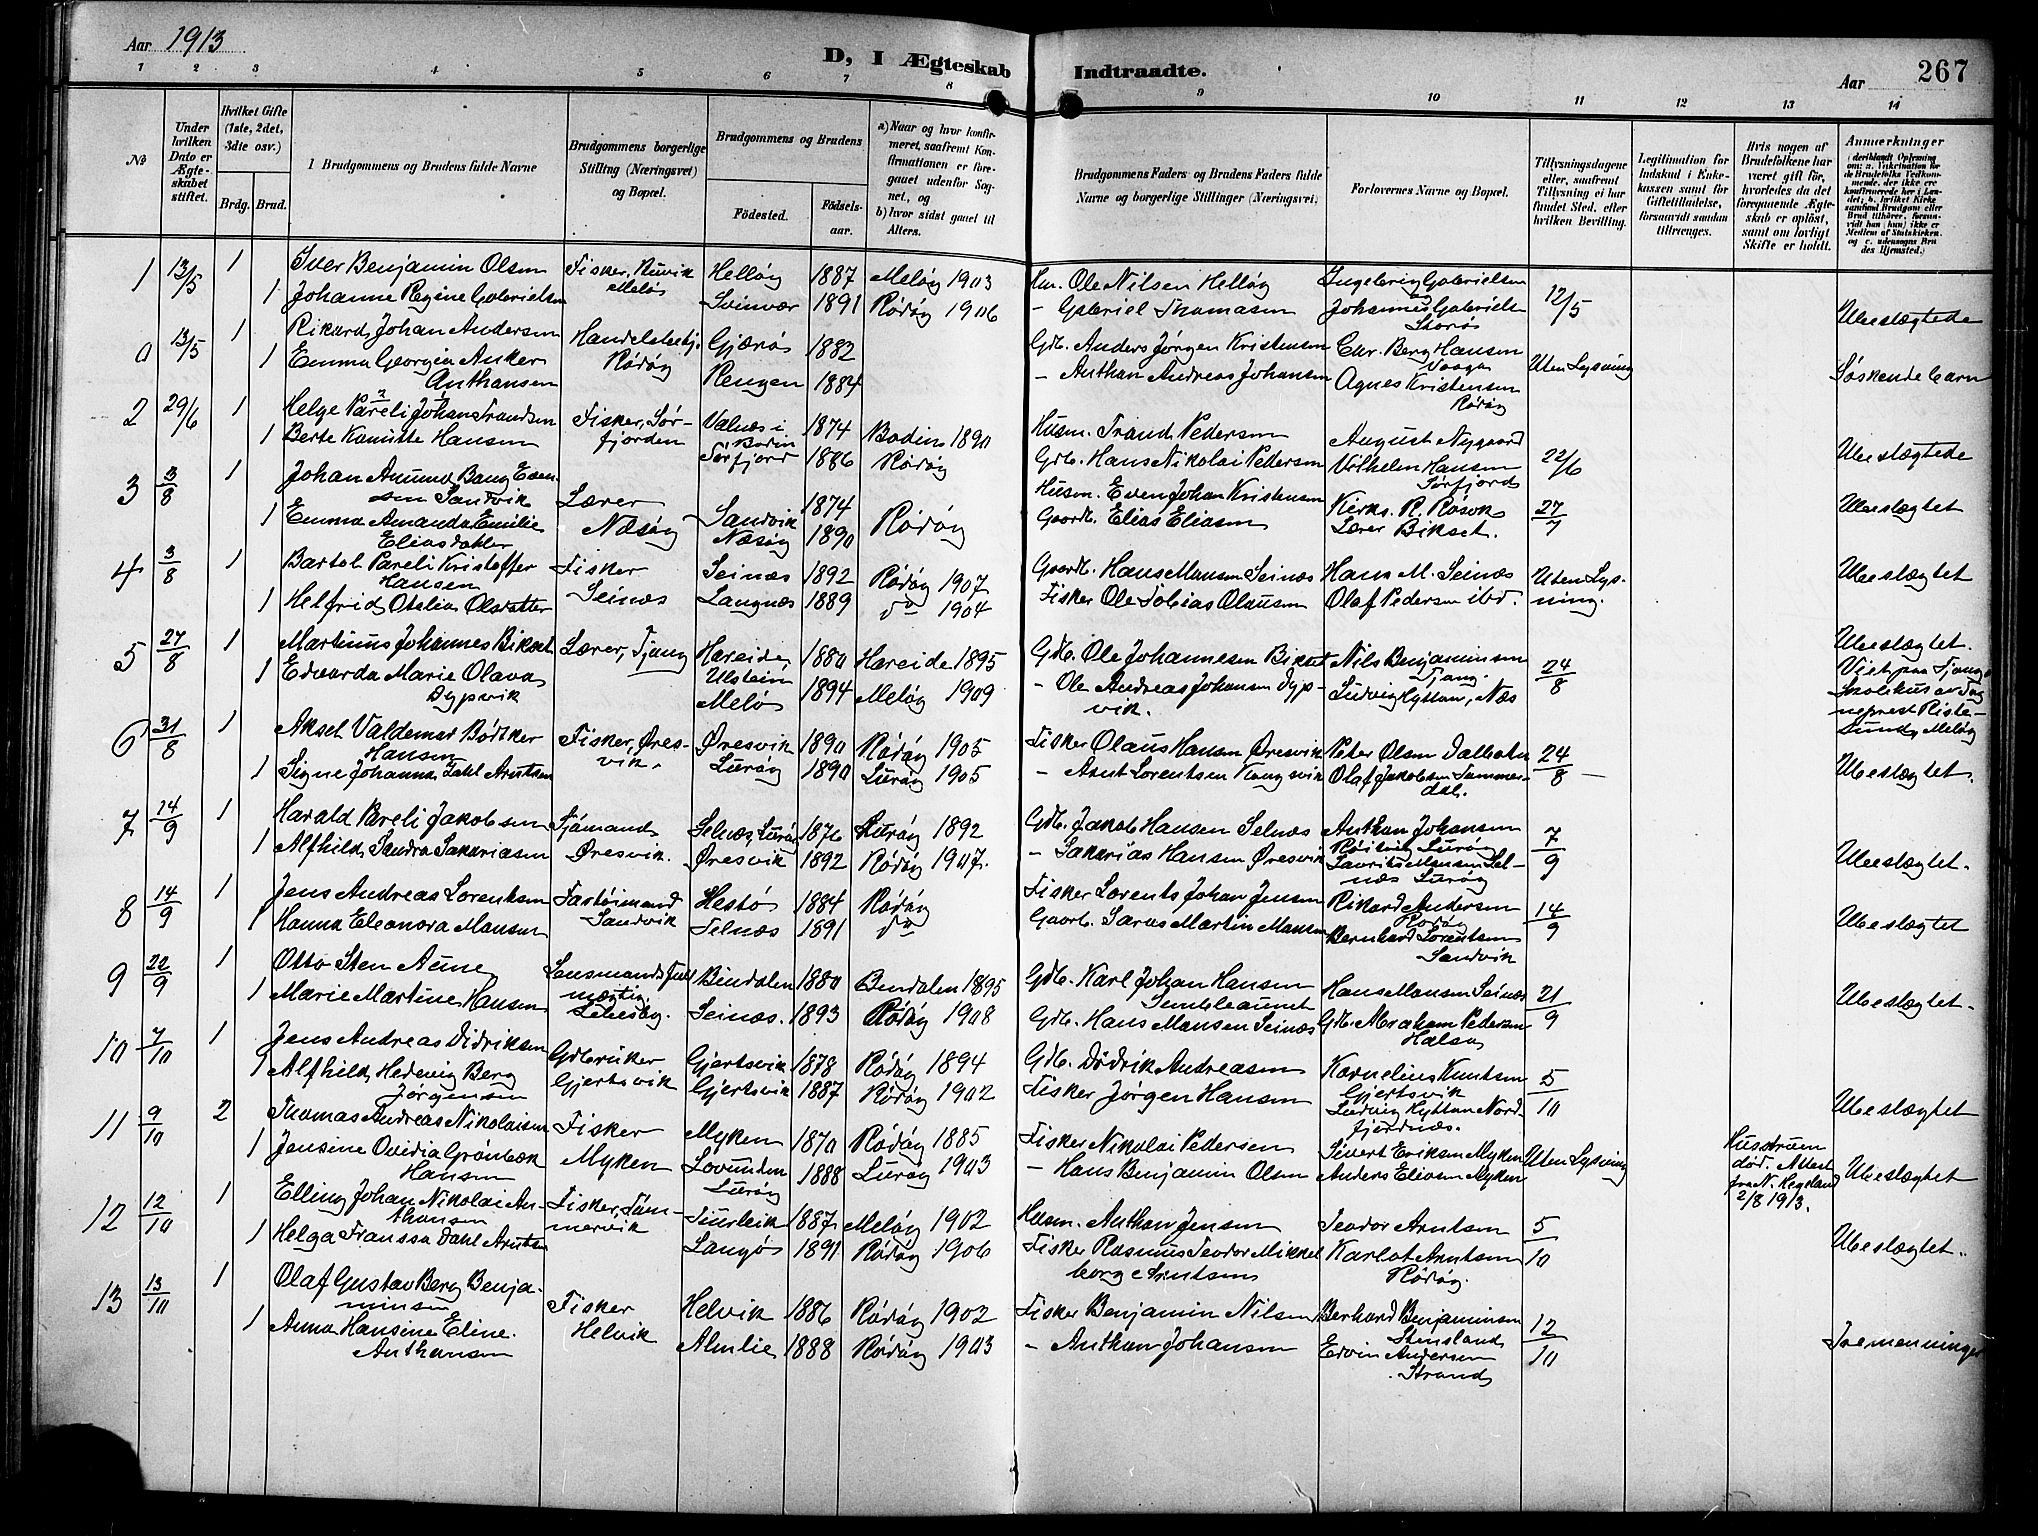 Aar 1913
D, I Ægteskab Indtraadte.
Aar 267
1 2 3 4 5 6 7 8 9 10 11 12 13 14
No
Under hvilken Dato er Ægteskabet stiftet.
Hvilket Gifte (1ste, 2det, 3die osv.)
Brdg. Brud.
1 Brudgommens og Brudens fulde Navne
Brudgommens borgerlige Stilling (Næringsvei) og Bopæl.
Brudgommens og Brudens
Fødested. Fødselsaar.
a) Naar og hvor konfirmeret, saafremt Konfirmationen er foregaaet udenfor Sognet, og
b) hvor sidst gaaet til Alters.
Brudgommens Faders og Brudens Faders fulde Navne og borgerlige Stillinger (Næringsvei)
Forlovernes Navne og Bopæl.
Tillysningsdagene eller, saafremt Tillysning ei har fundet Sted, efter hvilken Bevilling.
Legitimation for Indskud i Enkekassen samt for Giftetilladelse, forsaavidt saadan tiltrænges.
Hvis nogen af Brudefolkene har været gift før, hvorledes da det foregaaende Ægteskab er opløst, samt om lovligt Skifte er holdt.
Anmærkninger
1 13/5 1 Iver Benjamin Olsen Fisker, Meløy 1887 Meløy 1903 Ole Nilsen 12/5
1 Johanne Regine Gabrielsen Svinvær 1891 Rødøy 1906 - Gabriel Thomassen Johannes Gabrielsen Storø Ubeslægtede
0 13/5 1 Rikard Johan Andersen Rødøy Gjærø 1882 Gdb. Anders Jørgen Kristensen Chr. Berg Hansen Vaaga Uten Lysning
1 Emma Georgia Anker Anthonsen Rengen 1884 - Anthon Andreas Johansen Agnes Kristensen Rødøy Søskendebarn
2 29/6 1 Helge Pareli Johan Trandsen Fisker, Sørfjorden Valnæs i Bodin 1874 Bodin 1890 Husm. Trand Pedersen August Nygaard 22/6
1 Berte Kamitte Hansen Sørfjord 1886 Rødøy Gdb. Hans Nikolai Pedersen Vilhelm Hansen Sørfjord Ubeslægtede
3 3/8 1 Johan Amund Bang Evensen Sandvik Lærer Næsøy Sandvik 1874 Rødøy Husm. Even Johan Kristensen Kirks. R. Røsok 27/7 Ubeslægtet
1 Emma Amanda Emilie Eliasdatter Næsøy 1890 Gaardb. Elias Eliasen Lærer Bikset.
4 3/8 1 Bartol Pareli Kristoffer Hansen Fisker Seinæs Seinæs 1892 Rødøy 1907 Gaardb. Hans Mansen Seinæs Hans M. Seinæs Uten Lysning. Ubeslægtet
1 Helfrid Otelia Olsdatter Langnæs 1889 do 1904 Fisker Ole Tobias Olausen Olaf Pedersen ibd.
5 27/8 1 Martinus Johannes Bikset Lærer, Tjong Hareide, Ulstein 1880 Hareide 1895 Gdb. Ole Johannesen Bikset Nils Benjaminsen Tjong. 24/8 Ubeslægtet.
1 Edvarda Marie Olava Dypsvik Meløy 1894 Meløy 1909 - Ole Andreas Johansen Dypsvik. Ludvig Hyttan, Næs Viet paa Tjong Skolehus av Sogneprest Ristesund, Meløy
6 31/8 1 Aksel Valdemar Bødtker Hansen Fisker, Øresvik. Øresvik 1890 Rødøy 1905 Fisker Olaus Hansen Øresvik Peter Olsen Dalbotn 24/8 Ubeslægtet.
1 Signe Johanna Dahl Arntsen Lurøy 1890 Lurøy 1905 - Arnt Lorentsen Kongsvik Olaf Jakobsen
7 14/9 1 Harald Pareli Jakobsen Sjømand Øresvik. Selnæs, Lurøy 1876 Lurøy 1892 Gdb. Jakob Hansen Selnæs Anthon Johansen Lurøy 7/9
1 Alfhild Sandra Sakariasen Øresvik 1892 Rødøy 1907. - Sakarias Hansen Øresvik Laurits Mansen Selnæs Lurøy Ubeslægtet.
8 14/9 1 Jens Andreas Lorentsen Fartøimand Sandvik Hestø 1884 Rødøy Fisker Lorents Johan Jensen Rikard Andersen Rødøy 14/9
1 Hanna Eleonora Mansen Selnæs 1891 do Gaardb. Martin Mansen Bernhard Lorentsen Sandvik Ubeslægtet
9 22/9 1 Otto Sten Aune, Lensmandsfuldmægtig. Bindalen 1880 Bindalen 1895 Gdb. Karl Johan Hansen Hans Mansen Seinæs 21/9
1 Marie Martine Hansen Seinæs. 1893 Rødøy 1908 Gdb. Hans Mansen Seinæs Gdb. Abraham Pedersen Halsa Ubeslægtet.
10 7/10 1 Jens Andreas Didriksen Gdbruker Gjertsvik Gjertsvik 1878 Rødøy 1894 Gdb. Didrik Andreasen Kornelius Knutsen Gjertsvik 5/10
1 Alfhild Hedevig Berg Jørgensen Gjertsvik 1887 Rødøy 1902 Fisker Jørgen Hansen Ludvig Hyttan Nordfjordnæs. Ubeslægtet
11 9/10 2 Thomas Andreas Nikolaisen Fisker Myken Myken 1870 Rødøy 1885 Fisker Nikolai Pedersen Sivert Eriksen Myken Uten Lysning Hustrum død. Attest fra N. Hegeland 2/8 1913.
1 Jensine Ovidia Grønbæk Hansen Lovunden Lurøy 1888 Lurøy 1903 - Hans Benjamin Olsen Anders Eliasen Myken Ubeslægtet
12 12/10 1 Elling Johan Nikolai Anthonsen Fisker, 1887 Meløy 1902 Husm. Anthon Jensen Teodor Arntsen 5/10
1 Helga Franssa Dahl Arntsen Langø 1891 Rødøy 1906 Fisker Rasmus Teodor Mikkelborg Arntsen Karlot Arntsen Rødøy. Ubeslægtet.
13 13/10 1 Olaf Gustav Berg Benjaminsen Fisker Helvik Helvik 1886 Rødøy 1902 Fisker Benjamin Nilsen Berhard Benjaminsen Stensland 12/10
1 Anna Hansine Eline. Anthonsen Almlie 1888 Rødøy 1903 - Anthon Johansen Edvin Andersen Strand Tremenninger